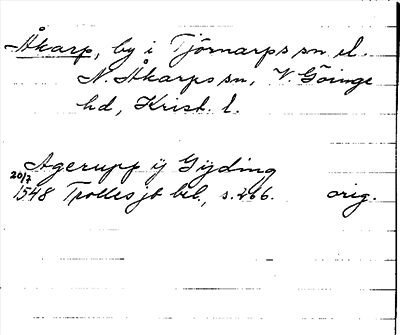 Åkarp, by i Tjörnarps sn el.
N. Åkarps sn, V. Göinge
hd, Krist. l.
Agerupp ij Gijding
20/7
1548 Trolles jb bil., s. 266. orig.